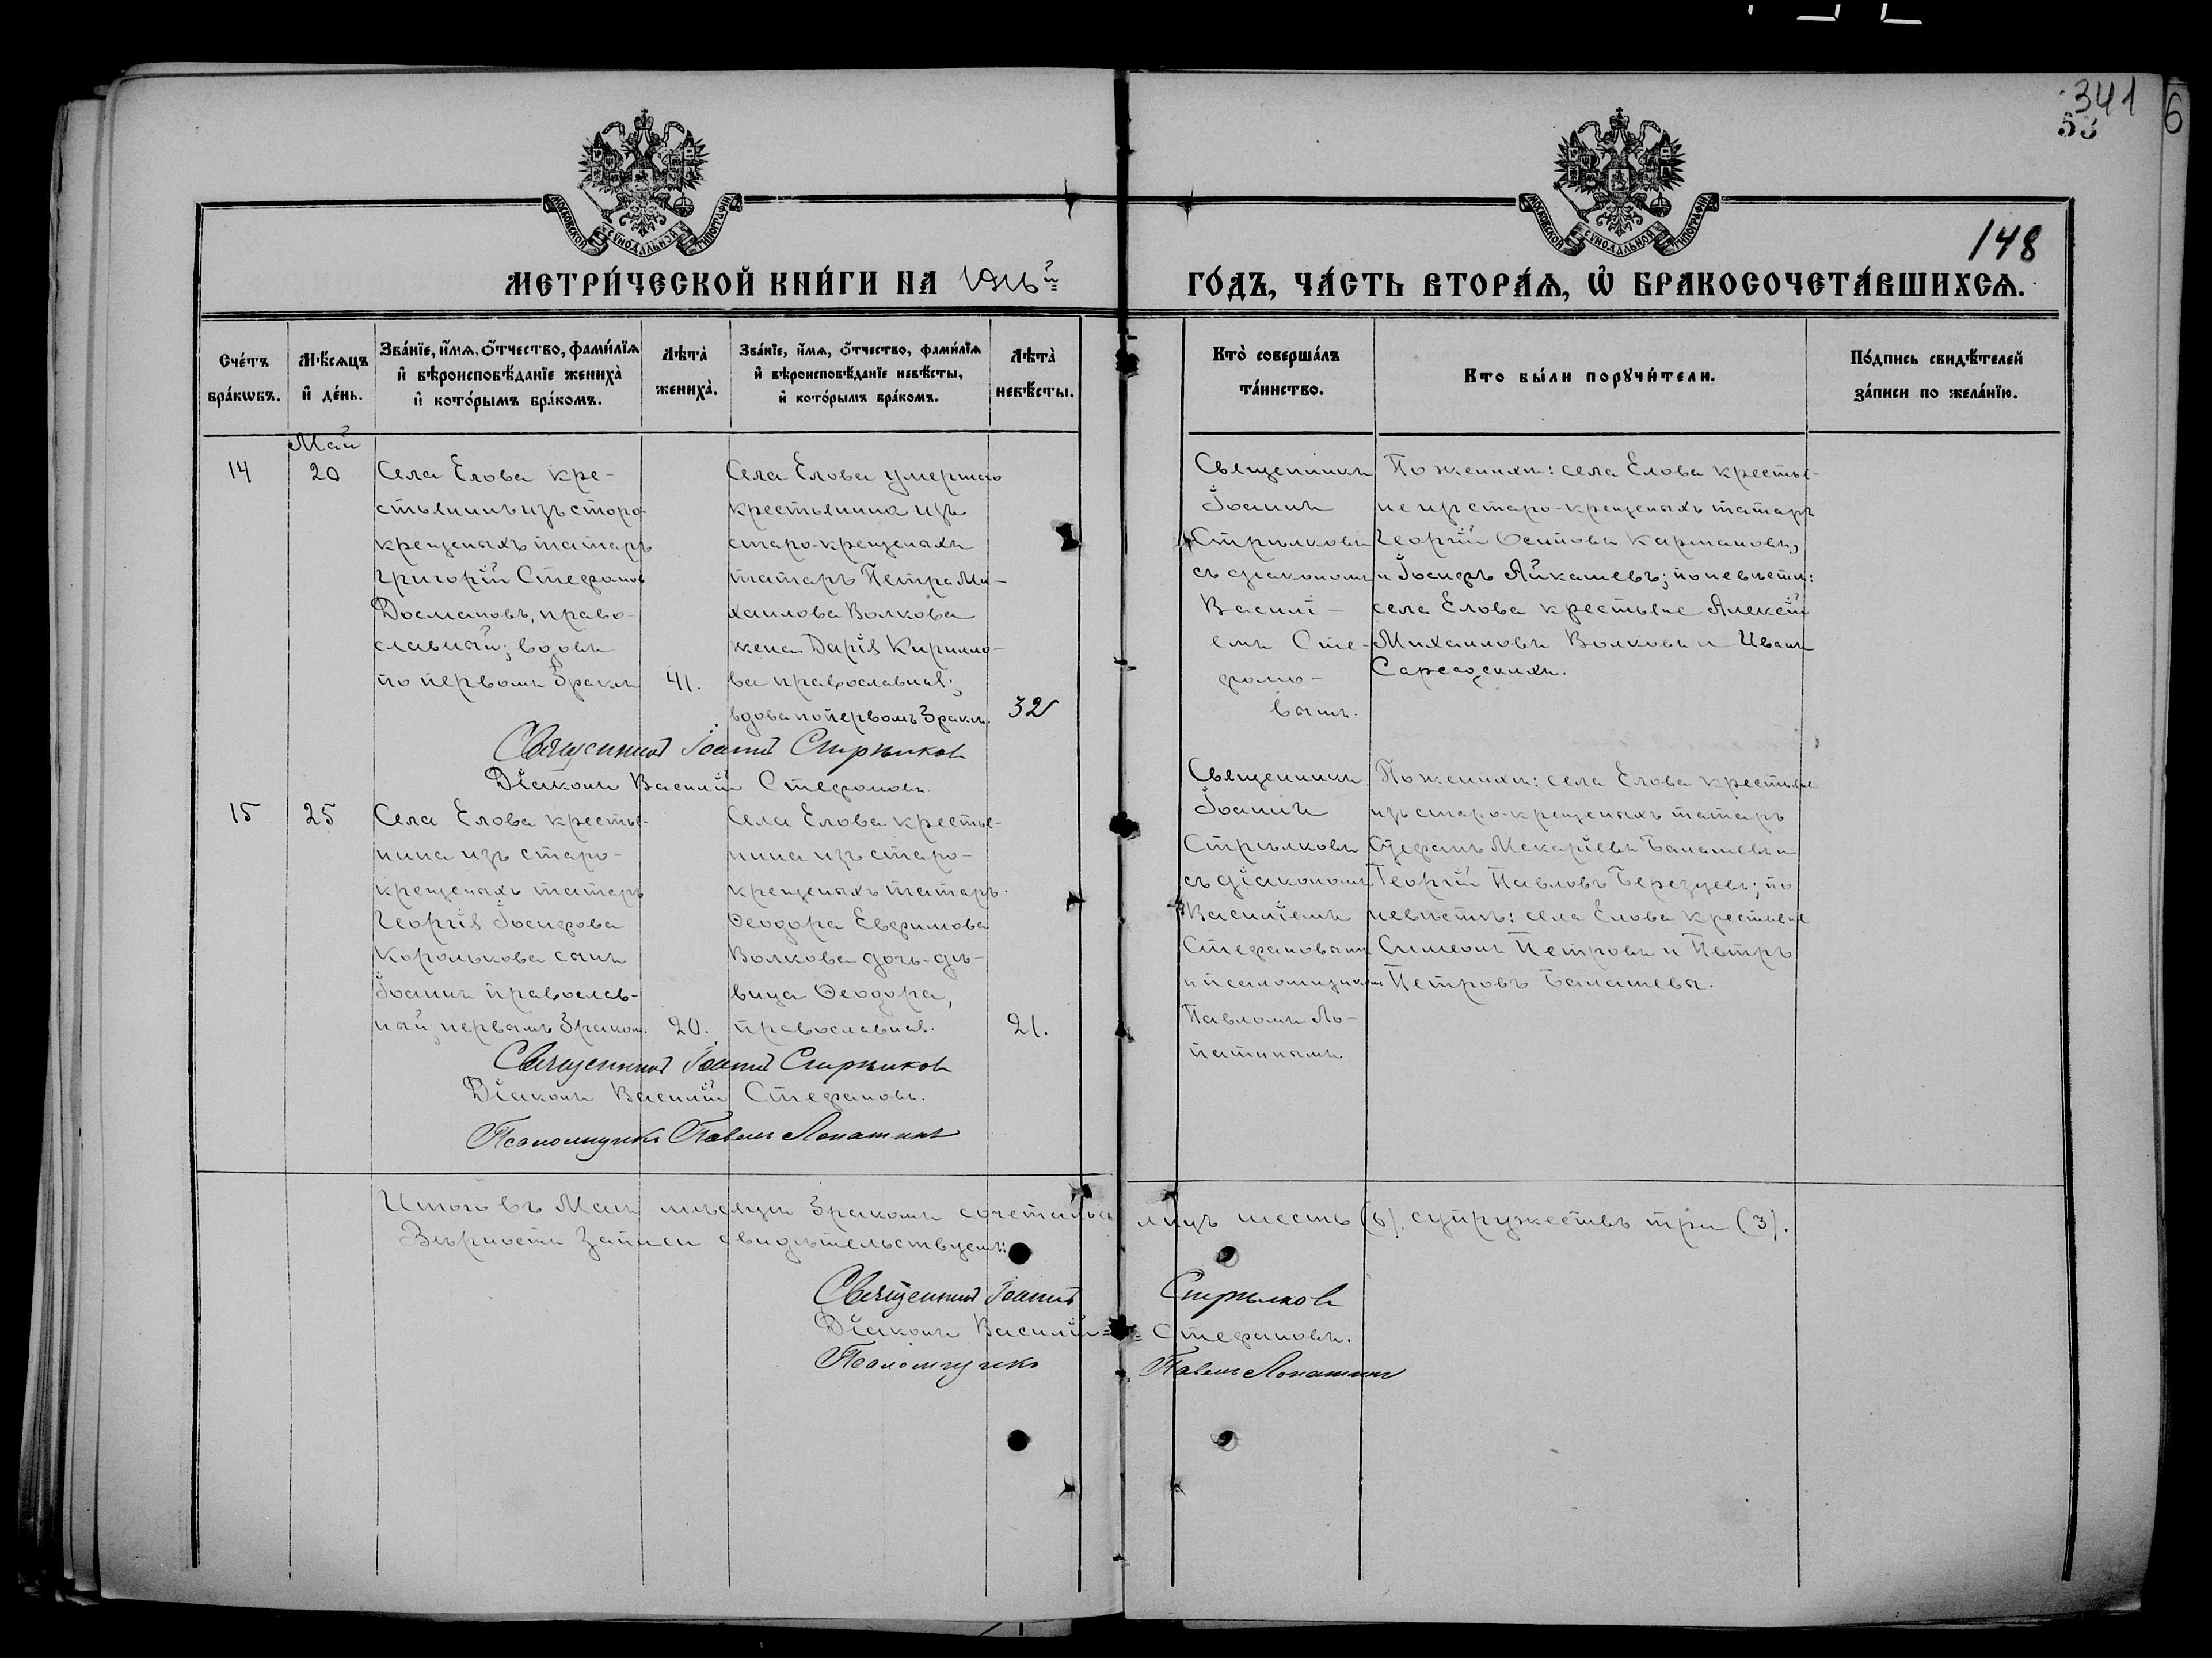 341
53
6
148
МОСКОВСКОЙ СѴНОДАЛЬНОЙ ТИПОГРАФІИ
МОСКОВСКОЙ СѴНОДАЛЬНОЙ ТИПОГРАФІИ
МЕТРИ́ЧЕСКОЙ КНИ́ГИ НА 1916й ГО́ДЪ, ЧА́СТЬ ВТОРА́Ѧ, Ѡ҆ БРАКОСОЧЕТА́ВШИХСѦ.
Сче́тъ бра́кѡвъ.
Мѣ́сѧцъ и҆ де́нь.
Зва́нїе, и҆́мѧ, ѻ҆́тчество, фами́лїѧ
и҆ вѣроисповѣ́данїе жениха̀
и҆ кото́рымъ бра́комъ.
Лѣта̀ жениха̀.
Зва́нїе, и҆́мѧ, ѻ҆́тчество, фами́лїѧ
и҆ вѣроисповѣ́данїе невѣ́сты,
и҆ кото́рымъ бра́комъ.
Лѣта̀ невѣ́сты.
Кто̀ соверша́лъ та́инство.
Кто бы́ли порꙋчи́тели.
По́дпись свидѣ́телей
за́писи по жела́нїю.
Май
14
20
Села Елова кре-
стьянинъ изъ старо-
крещеныхъ татаръ
Григорій Стефановъ
Досмановъ, право-
славный; вдовъ
по первомъ бракѣ
41.
Села Елова умершаго
крестьянина изъ
старо-крещеныхъ
татаръ Петра Ми-
хаилова Волкова
жена Дарія Кирилло-
ва православная;
вдова по первомъ бракѣ.
32
Священникъ
Іоаннъ
Стрѣлковъ
съ діакономъ
Василі-
емъ Сте-
фано-
вымъ.
По женихѣ: села Елова крестья-
не изъ старо-крещеныхъ татаръ
Георгій Осиповъ Кармановъ,
и Іосифъ Айкашевъ; по невѣстѣ:
села Елова крестьяне Алексѣй
Михаиловъ Волковъ и Иванъ
Священникъ Іоаннъ Стрѣлковъ
Діаконъ Василій Стефановъ.
15
25
Села Елова крестья-
нина изъ старо-
крещеныхъ татаръ
Георгія Іосифова
Королькова сынъ
Іоаннъ православ-
ный, первымъ бракомъ.
20.
Села Елова крестья-
нина изъ старо-
крещеныхъ татаръ
Ѳеодора Евфимова
Волкова дочь-дѣ-
вица Ѳеодора,
православная.
21.
Священникъ
Іоаннъ
Стрѣлковъ
съ діакономъ
Василіемъ
Стефановымъ
и псаломщикомъ
Павломъ Ло-
патинымъ
По женихѣ: села Елова крестьяне
изъ старо-крещеныхъ татаръ
Стефанъ Макаріевъ Балашевъ и
Георгій Павловъ Березцевъ; по
невѣстѣ: села Елова крестьяне
Симеонъ Петровъ и Петръ
Петровъ Балашевы.
Священникъ Іоаннъ Стрѣлковъ
Діаконъ Василій Стефановъ.
Псаломщикъ Павелъ Лопатинъ
Итого въ Маѣ мѣсяцѣ бракомъ сочеталось лицъ шесть (6), супружествъ три (3).
Вѣрность записи свидѣтельствуемъ:
Священникъ Іоаннъ Стрѣлковъ
Діаконъ Василій Стефановъ.
Псаломщикъ Павелъ Лопатинъ